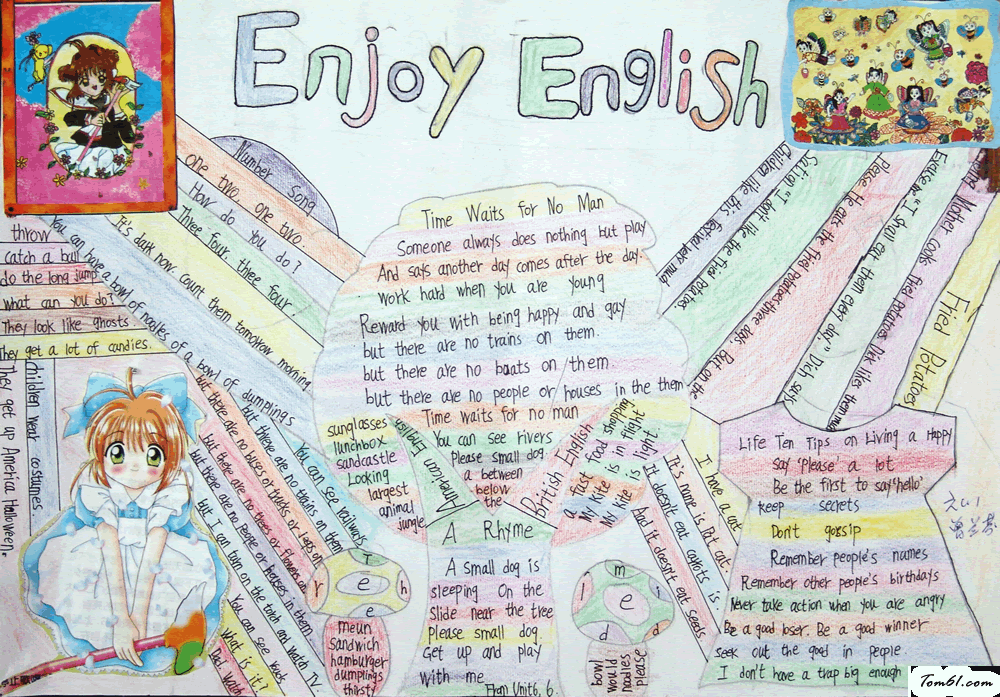 Enjoy English
Number song
one two, one two
How do you do?
Three four, three four,
It's dark now. count them tomorrow morning
You can have a bowl of noodles of a bowl of dumplings
throw
catch a ball
do the long jump
what can you do?
They look like ghosts
They get a lot of candies.
children wear costumes
They get up America Halloween.
Time Waits for No Man
Someone always does nothing but play
And says another day comes after the day.
work hard when you are young
Reward you with being happy and gay
but there are no trains on them.
but there are no boats on/them.
but there are no people or houses in the them
Time waits for no man
sunglasses
lunchbox
sandcastle
Looking
largest
animal
jungle
American English
You can see rivers
Please small dog.
a between
below
the
British English
a fast food shopping
My kite is in flight
My kite is light
You can see railways
but there are no trains on them
but there are no buses of trucks or legs on
but there are no trees or flowers on
but there are no people or houses in them.
but I can turn on the totch and watch TV.
You can see
What is it?
A Rhyme
A small dog is
sleeping On the
Slide near the tree
please small dog.
Get up and play
with me
Fran Unit6, 6.
T
h
e
r
e
meun
sandwich
hamburger
dumplings
thirsty
m
i
d
d
e
bowl
would
noodles
please
I have a cat
It's name is Pat cat.
It doesn't eat carrots is
And it doesn't eat seeds
Children like this festival very much
Sation "I don't like the fried potatoes.
Please He eats the fried potatoes three days. But on the
"I shall eat them every day." Dick says
Mother cooks fried potatoes. Dick like them
Fried Potatoes
Life Ten Tips on Living a Happy
Say 'Please' a lot
Be the first to say 'hello'
keep secrets
Don't gossip
Remember people's names
Remember other people's birthdays
Never take action when you are angry
Be a good loser. Be a good winner
seek out the good in people
I don't have a trap big enough
Tom61.com